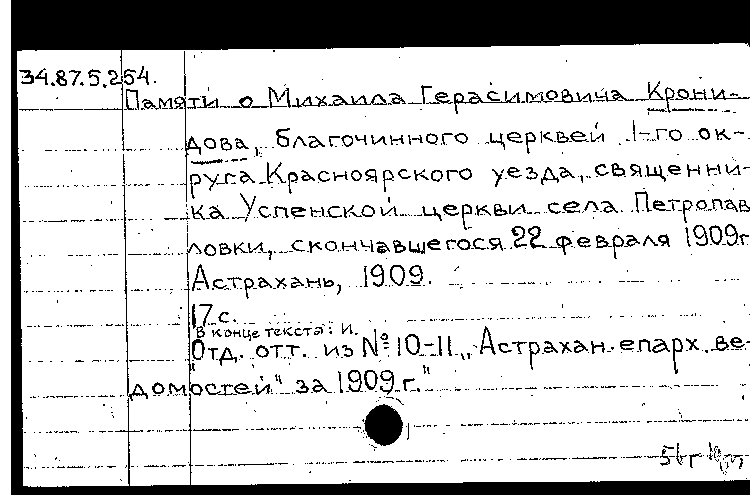 34.87.5.254.
Памяти о Михаила Герасимовича Крони-
дова, благочинного церквей 1-го ок-
руга Красноярского уезда, священни-
ка Успенской церкви села Петропав
ловки, скончавшегося 22 февраля 1909г
Астрахань, 1909.
17 с.
В конце текста: И.
"Отд. отт. из № 10-11 „Астрахан. епарх. ве-
домостей" за 1909 г."